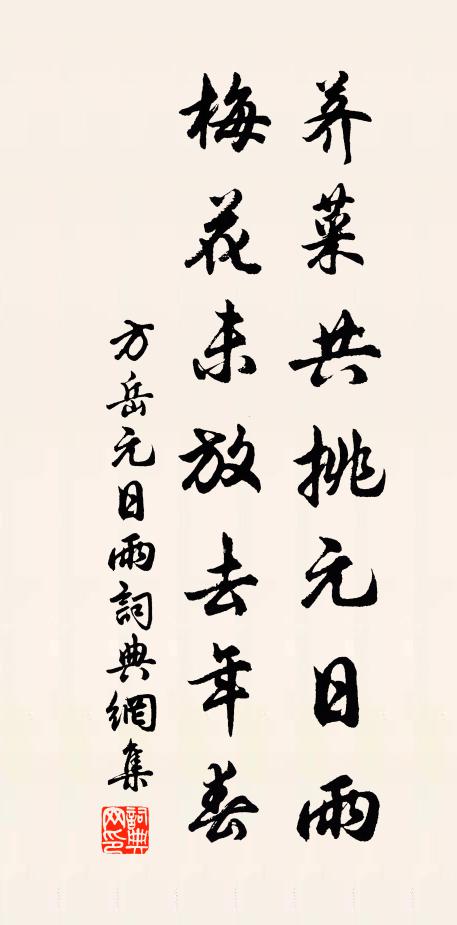 荠菜共挑元日雨
梅花未放去年春
方岳元日雨詞典網集
詞典网印